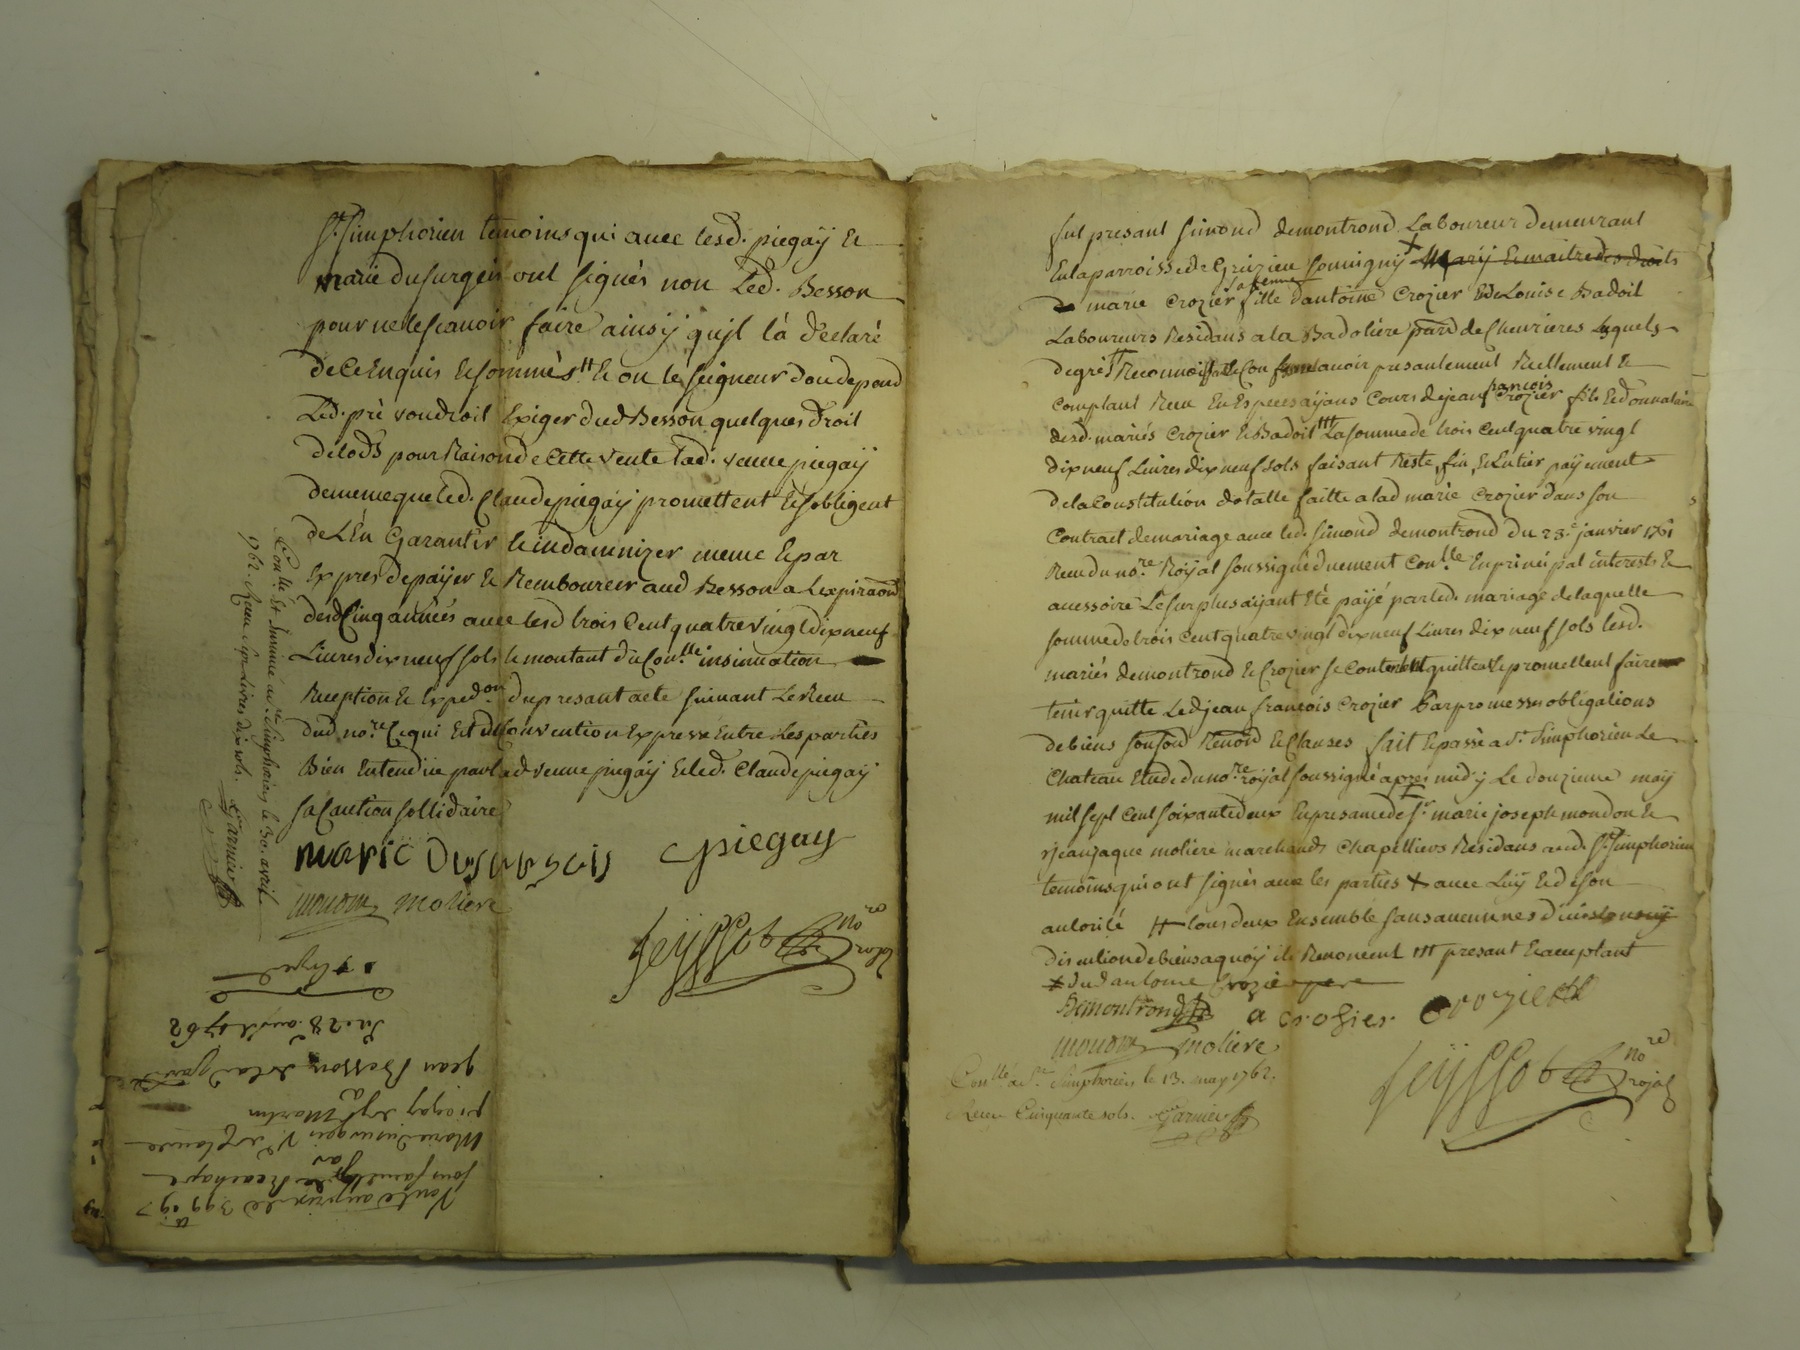 St. Simphorien temoins qui avec lesd. piegaÿ et
marie dusurgeis ont signés non Led. Besson
pour ne le scavoir faire ainsÿ qu'jl là déclaré
de ce Enquis et sommés tt et ou le seigneur dou depend
Led. pré voudroit Exiger dud Besson quelques droit
de lods pour Raison de Cette vente lad. veuve piegaÿ
de meme que led. Claude piegaÿ promettent et s'obligent
de L'En Garantir et indamnizer meme Et par
Exprés de paÿer et Rembourcer aud Besson a Lexpiraon
desd Cinq années avec lesd trois Cent quatre vingt dix neuf
Livres dix neuf sols le montant du Con.lle insinuation
Reception et Exped.on du present acte suivant Le Receu
dud no.re Ce qui Est de Convention Expresse Entre Les parties
Bien Entendüe par lad veuve piegaÿ et led. Claude piegaÿ
sa Caution sollidaire
marie Dusurgeis piegay
mondon moliere
feÿssot no.re roÿal
Con.lle Et Insinué a St. Simphorien le 30. avril
1762. Receu Livres dix sols.
Garnier
Du 28. avril 1762
jean Besson de la
piegay Martin
Marie Dusurgeis V.e de Claude
Vente au prix de 399 lt 19 s
fut presant Simond demontrond Laboureur demeurant
En la parroisse de Grézieu Souvigny ✗ Marÿ Et maitre des droits
de marie Crozier sa femme fille d'antoine Crozier Et de Louise Badoit
Laboureurs Residans a la Badoliere parr de Chevrieres Lesquels
de gré tt Reconnoissent et Confessent avoir presantement Reellement et
Comptant Receu En Especes aÿans Cours de jean françois Crozier fils Et donnataire
desd. mariés Crozier et Badoit ttt La somme de trois Cent quatre vingt
dix neuf Livres dix neuf sols faisant Reste, fin, et Entier paÿement
de la Constitution dotalle faitte a lad marie Crozier dans son
Contract de mariage avec led. Simond demontrond du 23.e janvier 1761
Receu du no.re Roÿal soussigné duement Con.lle En principal interests et
accessoire Le surplus aÿant Eté paÿé par led. mariage de laquelle
somme de trois Cent quatre vingt dix neuf Livres dix neuf sols lesd.
mariés demontrond et Crozier se Contentent quittent et promettent faire
tenir quitte Led jean françois Crozier Par promesses obligations
de biens Renond et Clauses fait et passé a St. Simphorien Le
Chateau Etude du no.re roÿal soussigné apres midÿ Le douzieme maÿ
mil sept Cent soixante deux En presance de Sr. marie joseph mondon et
jean jaque moliere marchands Chapelliers Residans aud. St. Simphorien
temoins qui ont signés avec les parties ✗ avec Luÿ Et de son
autorité tt tous deux Ensemble sans aucunnes division nÿ
discution de biens a quoÿ ils Renoncent ttt presant et acceptant
✗ dud antoine Crozier pere
Demontrond a crozier crozier
mondon moliere
feÿssot no.re rojal
Con.lle a St. Simphorien le 13. may 1762.
Receu Cinquante sols. Garnier